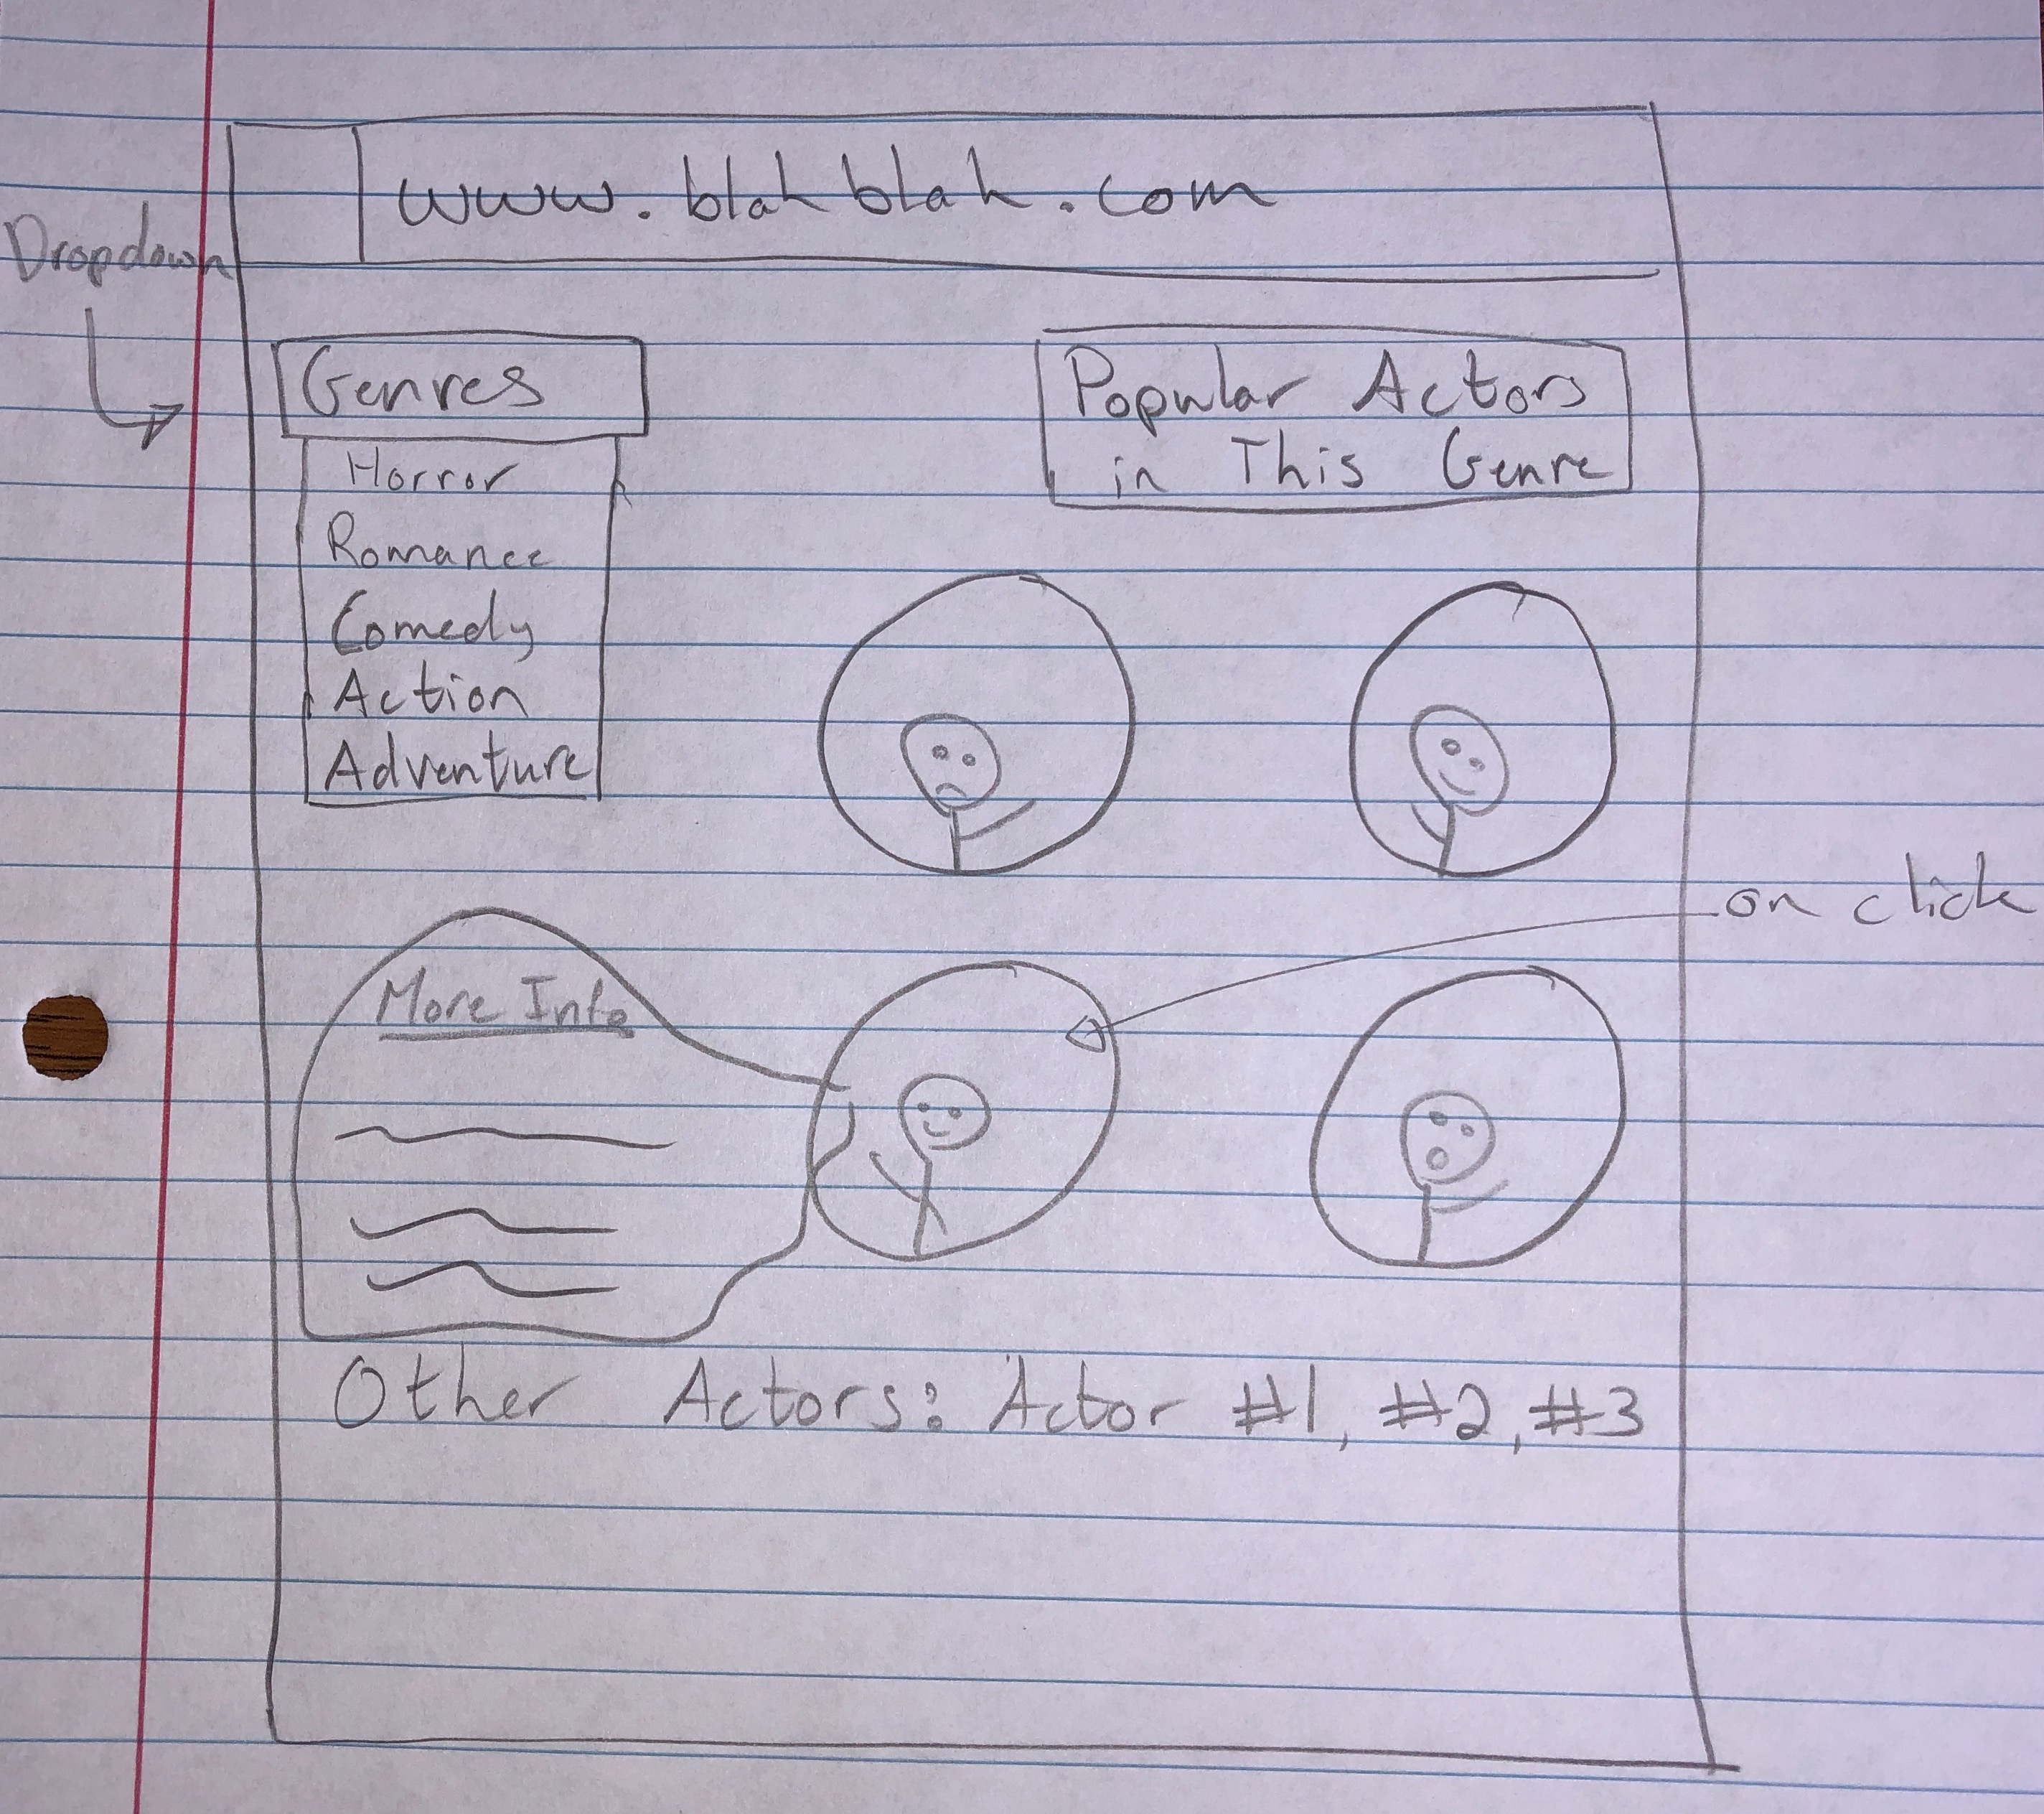 www.blahblah.com
Dropdown
Genres
Horror
Romance
Comedy
Action
Adventure
Popular Actors
in This Genre
on click
More Info
Other Actors: Actor #1, #2, #3